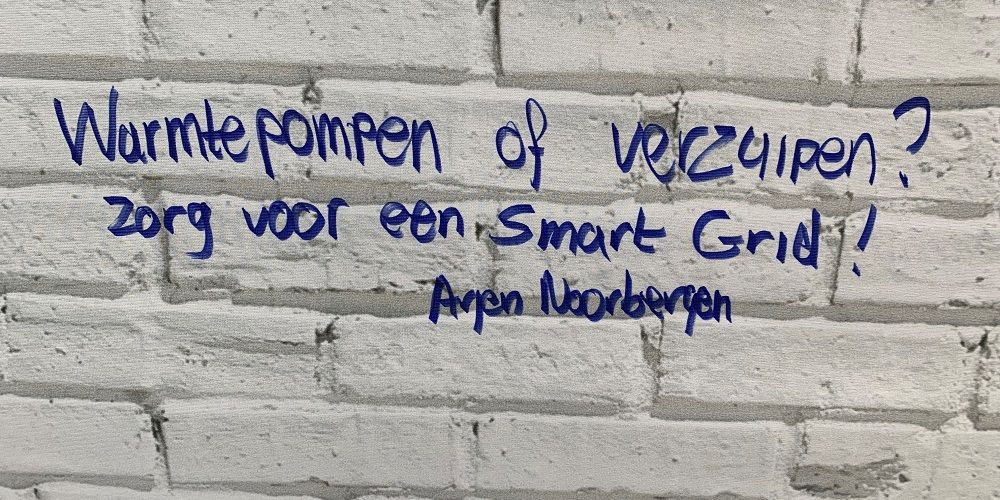 Warmtepompen of verzuipen?
Zorg voor een Smart Grid!
Arjen Noorbergen